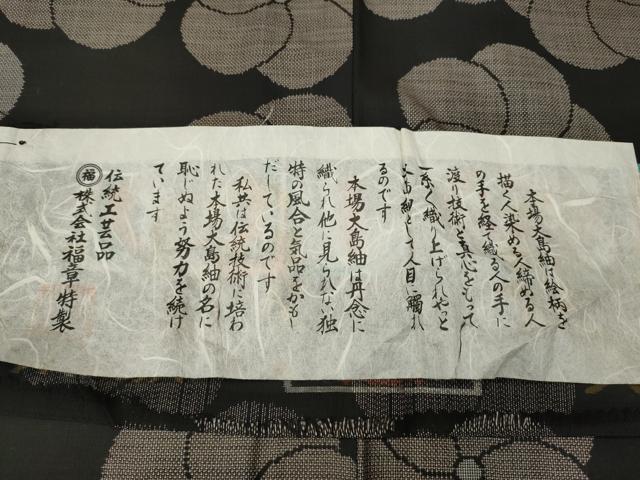 本場大島紬は絵柄を
描く人染める人締める人
の手を経て織る人の手に
渡り技術と真心をもって
一糸々々織り上げられやっと
大島紬として人目に觸れ
るのです
本場大島紬は丹念に
織られ他に見られない独
特の風合と気品をかもし
だしているのです
私共は伝統技術に培わ
れた本場大島紬の名に
恥じぬよう努力を続け
ています
伝統工芸品
福 株式会社福章特製